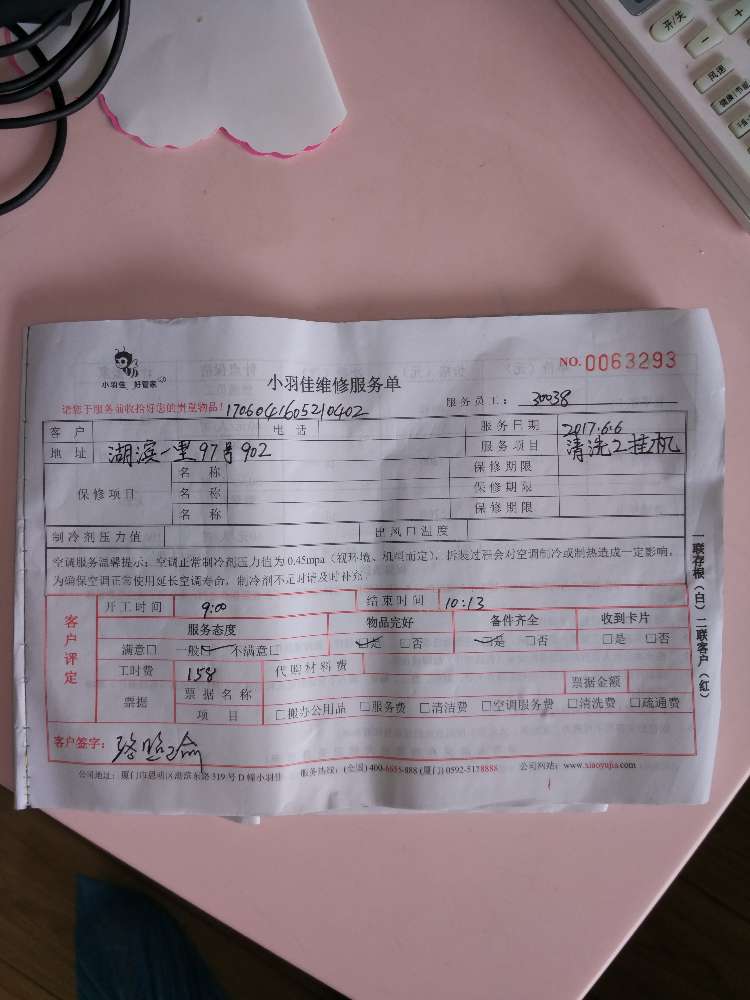 开/关
风速
小羽佳 好管家
NO.0063293
小羽佳维修服务单
请您于服务前收拾好您的贵重物品!
170604160521 0402
服务员工: 30038
客户 电话 服务日期 2017.6.6
地址 湖滨一里97号902 服务项目 清洗2挂机
保修项目 名称 保修期限
名称 保修期限
名称 保修期限
制冷剂压力值 出风口温度
空调服务温馨提示:空调正常制冷剂压力值为0.45mpa(视环境、机型而定),拆装过程会对空调制冷或制热造成一定影响,
为确保空调正常使用延长空调寿命,制冷剂不足时请及时补充
客户评定
开工时间 9:00 结束时间 10:13
服务态度 物品完好 备件齐全 收到卡片
满意□ 一般□ 不满意□ □是 □否 □是 □否 □是 □否
工时费 158 代购材料费
票据 票据名称 票据金额
项目 □搬办公用品 □服务费 □清洁费 □空调服务费 □清洗费 □疏通费
客户签字:
公司地址:厦门市思明区湖滨东路319号D幢小羽佳 服务热线:(全国)400-6655-888(厦门)0592-5178888 公司网站:www.xiaoyujia.com
一联存根(白) 二联客户(红)